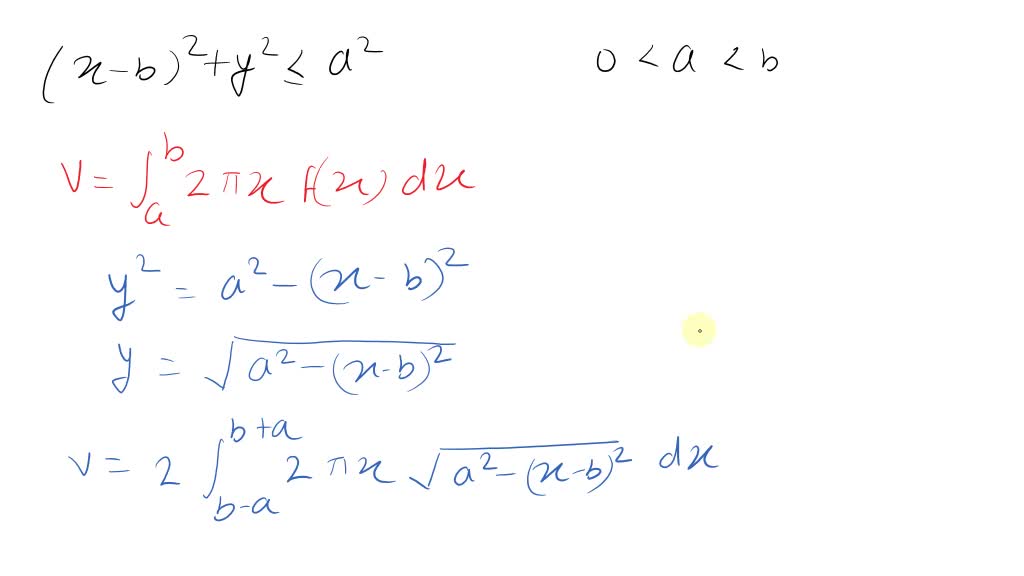 (x-b)²+y² ≤ a² 0 < a < b
V = ∫_a^b 2πx f(x) dx
y² = a² - (x-b)²
y = √(a² - (x-b)²)
V = 2 ∫_{b-a}^{b+a} 2πx √(a² - (x-b)²) dx